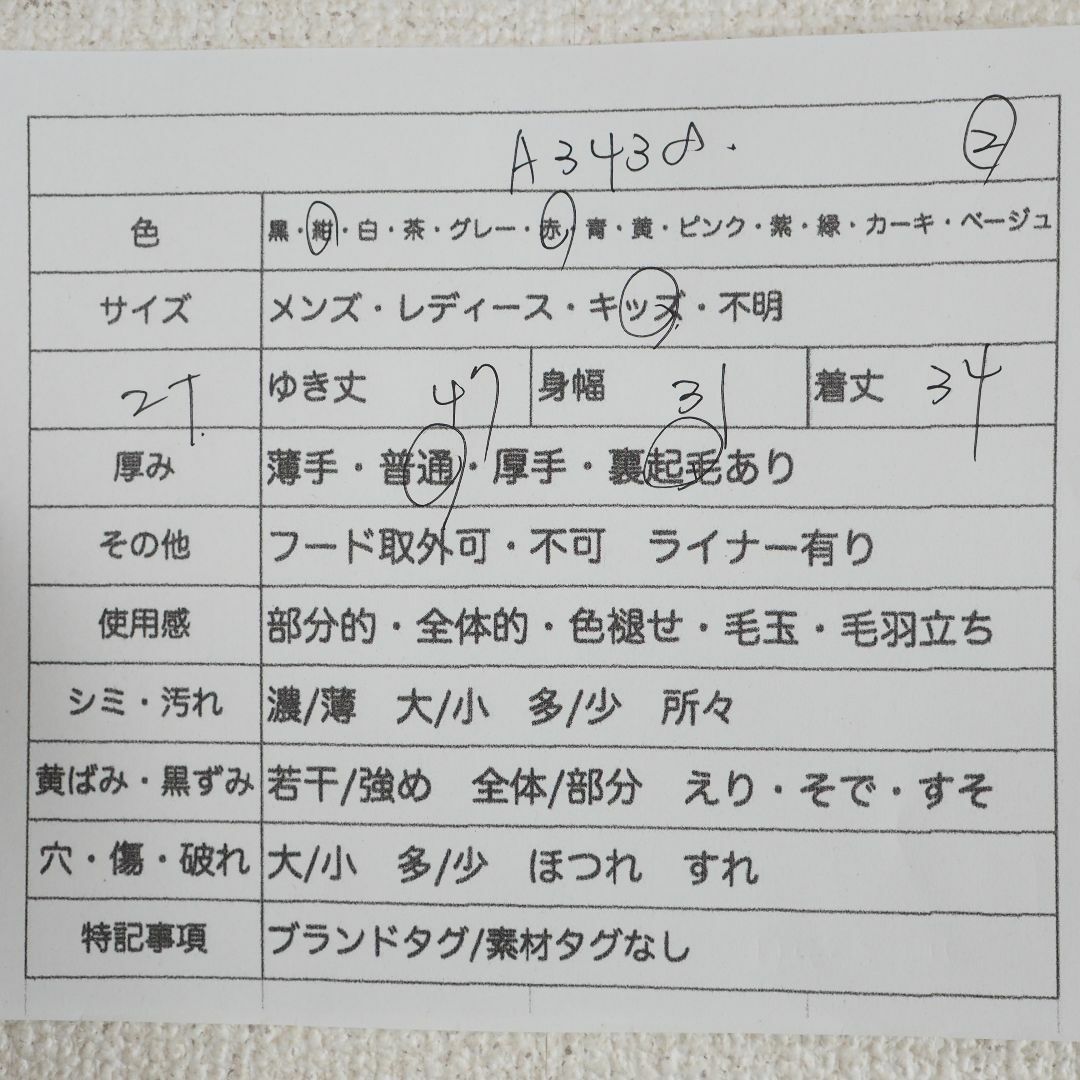 A3438. ②
色 黒・紺・白・茶・グレー・赤・青・黄・ピンク・紫・緑・カーキ・ベージュ
サイズ メンズ・レディース・キッズ・不明
2T ゆき丈 47 身幅 31 着丈 34
厚み 薄手・普通・厚手・裏起毛あり
その他 フード取外可・不可 ライナー有り
使用感 部分的・全体的・色褪せ・毛玉・毛羽立ち
シミ・汚れ 濃/薄 大/小 多/少 所々
黄ばみ・黒ずみ 若干/強め 全体/部分 えり・そで・すそ
穴・傷・破れ 大/小 多/少 ほつれ すれ
特記事項 ブランドタグ/素材タグなし